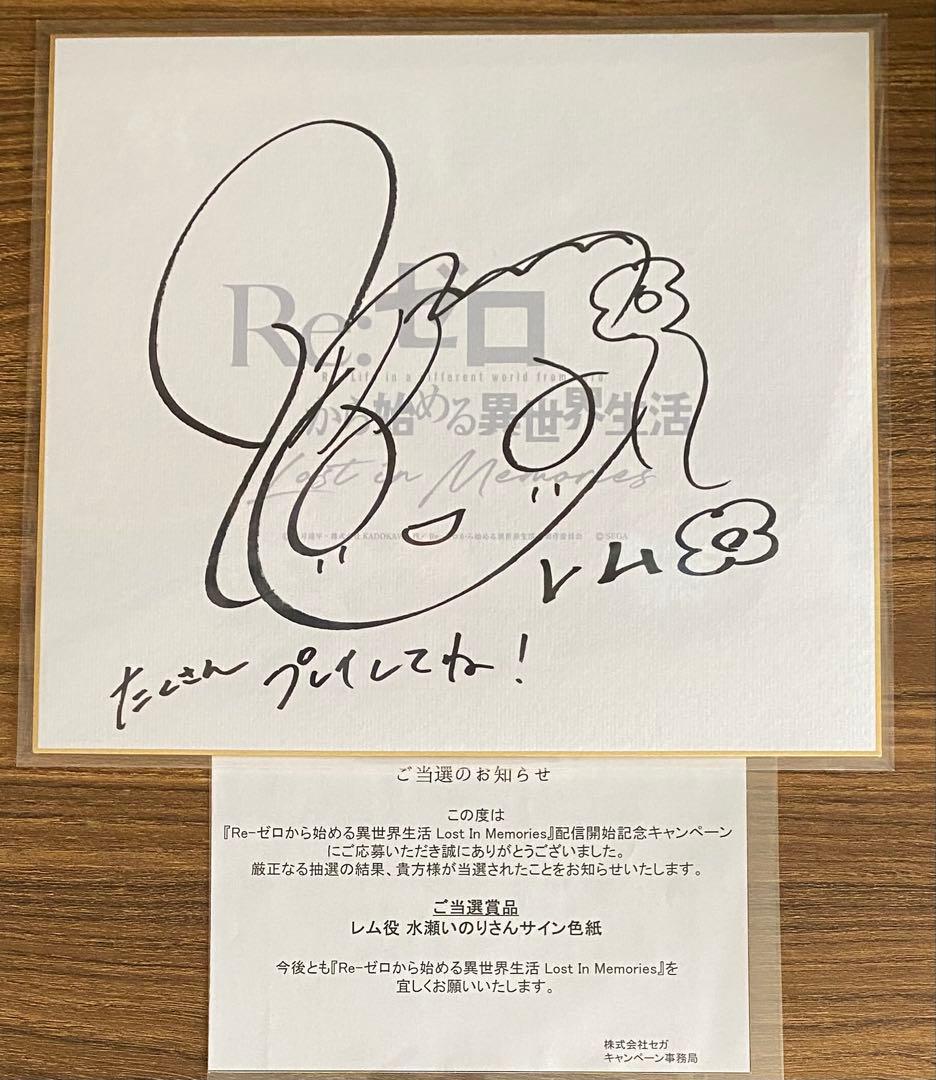 Re:ゼロ
Re: Life in a different world from zero
から始める異世界生活
Lost in Memories
©SEGA
レム
たくさん プレイしてね!
ご当選のお知らせ
この度は
『Re-ゼロから始める異世界生活 Lost In Memories』配信開始記念キャンペーン
にご応募いただき誠にありがとうございました。
厳正なる抽選の結果、貴方様が当選されたことをお知らせいたします。
ご当選賞品
レム役 水瀬いのりさんサイン色紙
今後とも『Re-ゼロから始める異世界生活 Lost In Memories』を
宜しくお願いいたします。
株式会社セガ
キャンペーン事務局